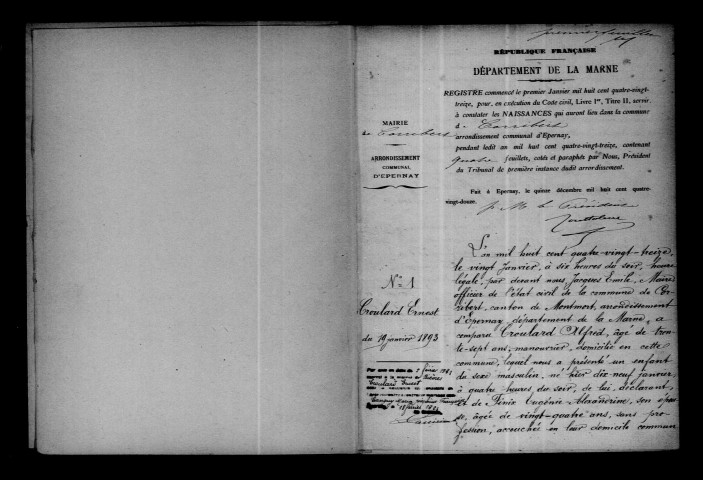 RÉPUBLIQUE FRANÇAISE
DÉPARTEMENT DE LA MARNE
REGISTRE commencé le premier Janvier mil huit cent quatre-vingt-
treize, pour, en exécution du Code civil, Livre Ier, Titre II, servir
à constater les NAISSANCES qui auront lieu dans la commune
d
arrondissement communal d'Epernay,
pendant ledit an mil huit cent quatre-vingt-treize, contenant
quatre feuillets, cotés et paraphés par Nous, Président
du Tribunal de première instance dudit arrondissement.
Fait à Epernay, le quinze décembre mil huit cent quatre-
vingt-douze.
p. M. le Président
MAIRIE
de
ARRONDISSEMENT
COMMUNAL
D'EPERNAY
N° 1
Croulard Ernest
du 19 janvier 1893
L'an mil huit cent quatre-vingt-treize,
le vingt Janvier, à six heures du soir, heure
légale, par devant nous, Jacques Emile, Maire
officier de l'état civil de la commune de Cor-
ribert, canton de Montmort, arrondissement
d'Epernay, département de la Marne, a
comparu Croulard Alfred, âgé de tren-
te-sept ans, manouvrier, domicilié en cette
commune, lequel nous a présenté un enfant
du sexe masculin, né hier dix-neuf janvier,
à quatre heures du soir, de lui, déclarant,
et de Finix Eugénie Alexandrine, son épou-
se, âgée de vingt-quatre ans, sans pro-
fession, accouchée en leur domicile commun